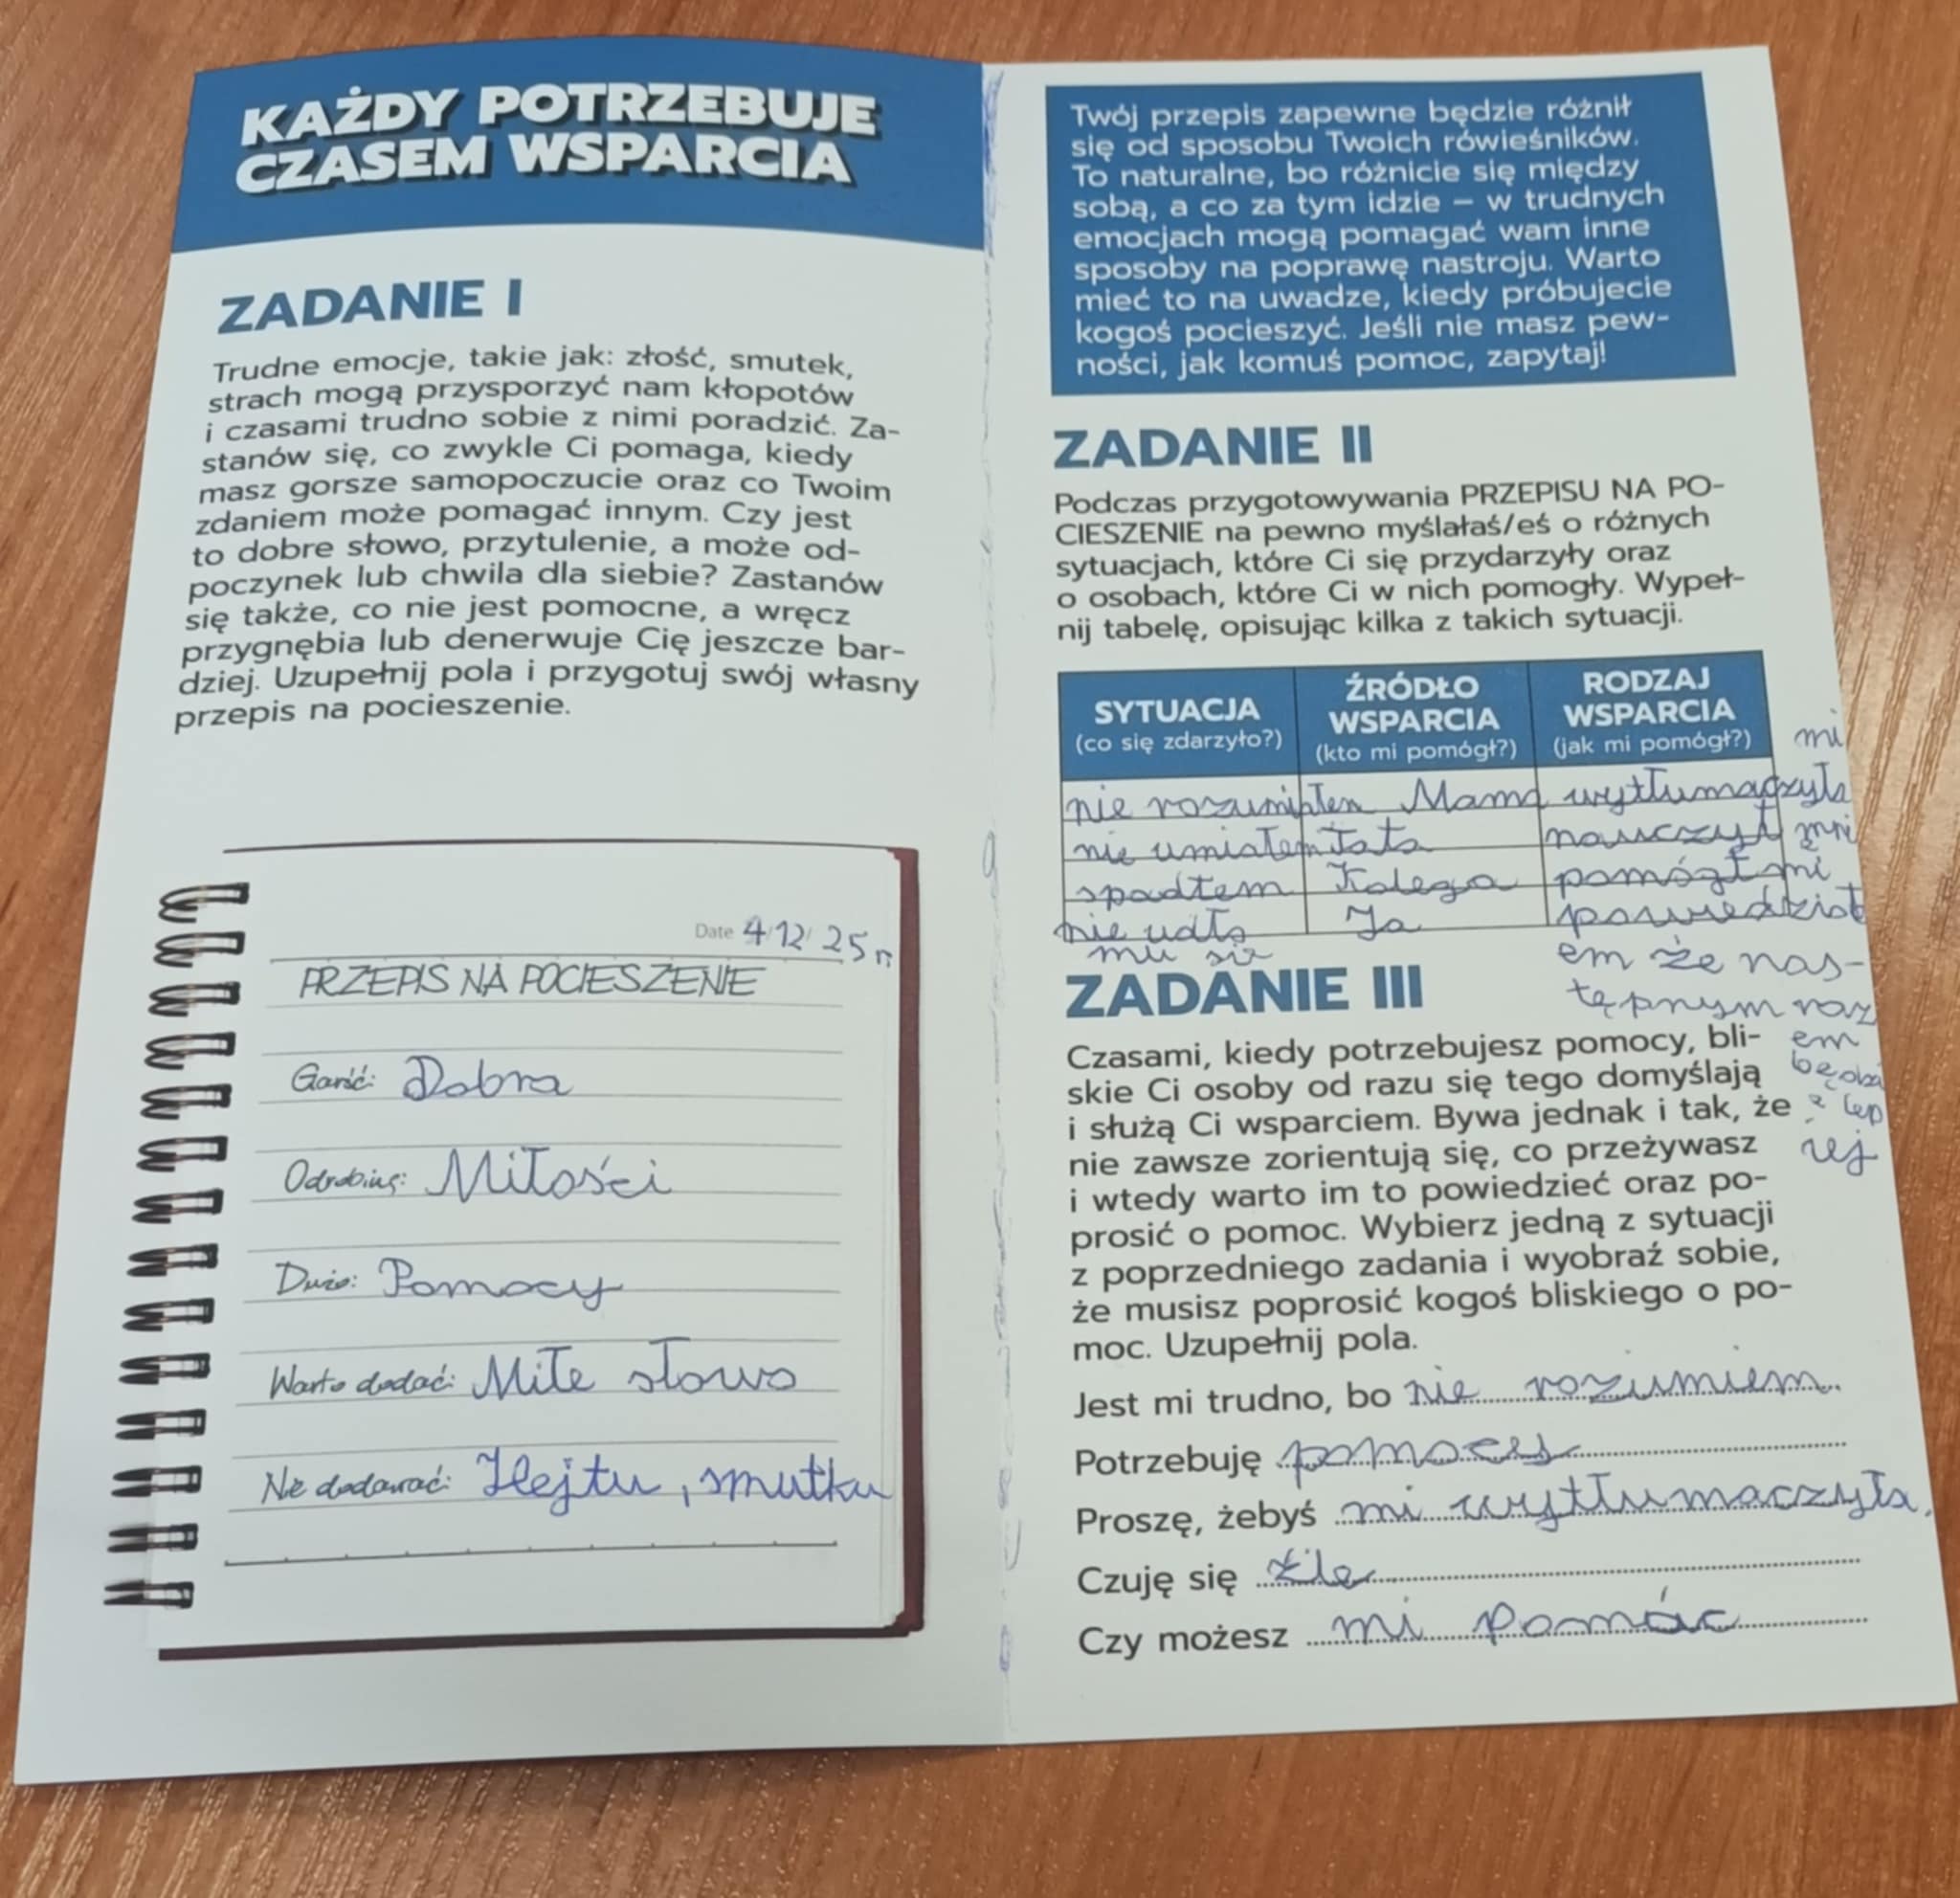 KAŻDY POTRZEBUJE
CZASEM WSPARCIA
ZADANIE I
Trudne emocje, takie jak: złość, smutek,
strach mogą przysporzyć nam kłopotów
i czasami trudno sobie z nimi poradzić. Za-
stanów się, co zwykle Ci pomaga, kiedy
masz gorsze samopoczucie oraz co Twoim
zdaniem może pomagać innym. Czy jest
to dobre słowo, przytulenie, a może od-
poczynek lub chwila dla siebie? Zastanów
się także, co nie jest pomocne, a wręcz
przygnębia lub denerwuje Cię jeszcze bar-
dziej. Uzupełnij pola i przygotuj swój własny
przepis na pocieszenie.
Date 4/12/25 r
PRZEPIS NA POCIESZENIE
Garść: Dobra
Odrobinę: Miłości
Dużo: Pomocy
Warto dodać: Miłe słowo
Nie dodawać: Hejtu, smutku
Twój przepis zapewne będzie różnił
się od sposobu Twoich rówieśników.
To naturalne, bo różnicie się między
sobą, a co za tym idzie – w trudnych
emocjach mogą pomagać wam inne
sposoby na poprawę nastroju. Warto
mieć to na uwadze, kiedy próbujecie
kogoś pocieszyć. Jeśli nie masz pew-
ności, jak komuś pomoc, zapytaj!
ZADANIE II
Podczas przygotowywania PRZEPISU NA PO-
CIESZENIE na pewno myślałaś/eś o różnych
sytuacjach, które Ci się przydarzyły oraz
o osobach, które Ci w nich pomogły. Wypeł-
nij tabelę, opisując kilka z takich sytuacji.
SYTUACJA
(co się zdarzyło?)
ŹRÓDŁO
WSPARCIA
(kto mi pomógł?)
RODZAJ
WSPARCIA
(jak mi pomógł?)
mi
Mama wytłumaczyła
nie umiałem Tata nauczył
spadłem Kolega pomógł mi
nie udło Ja powiedział
mu się em że nas-
tępnym raz
em
ZADANIE III
Czasami, kiedy potrzebujesz pomocy, bli-
skie Ci osoby od razu się tego domyślają
i służą Ci wsparciem. Bywa jednak i tak, że
nie zawsze zorientują się, co przeżywasz
i wtedy warto im to powiedzieć oraz po-
prosić o pomoc. Wybierz jedną z sytuacji
z poprzedniego zadania i wyobraź sobie,
że musisz poprosić kogoś bliskiego o po-
moc. Uzupełnij pola.
Jest mi trudno, bo nie rozumiem
Potrzebuję pomocy
Proszę, żebyś mi wytłumaczyła
Czuję się źle
Czy możesz mi pomóc